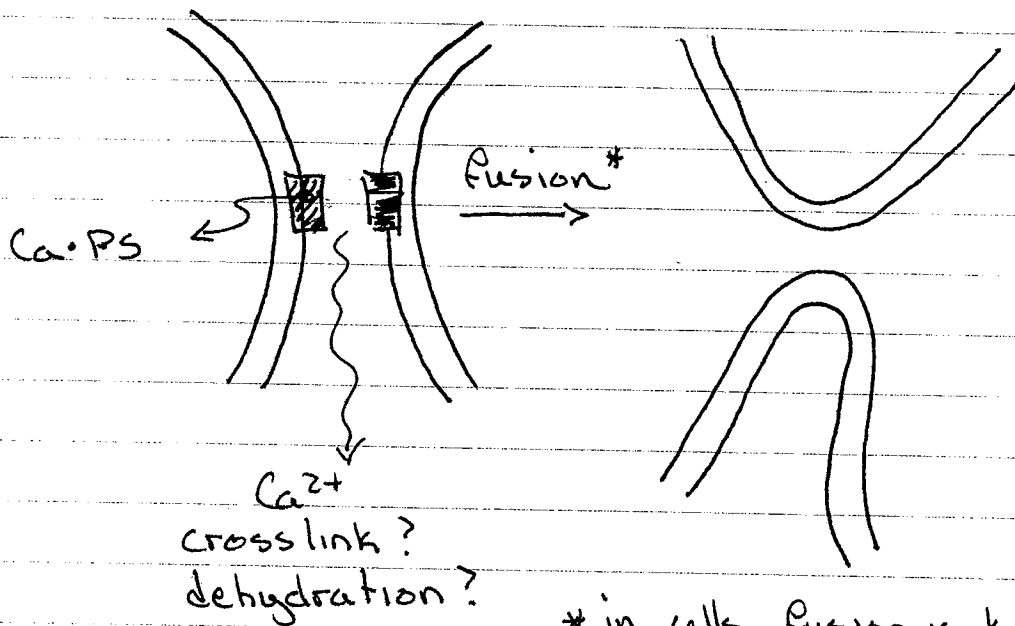 fusion*
Ca•PS
Ca2+
crosslink?
dehydration?
* in cells, fusion is